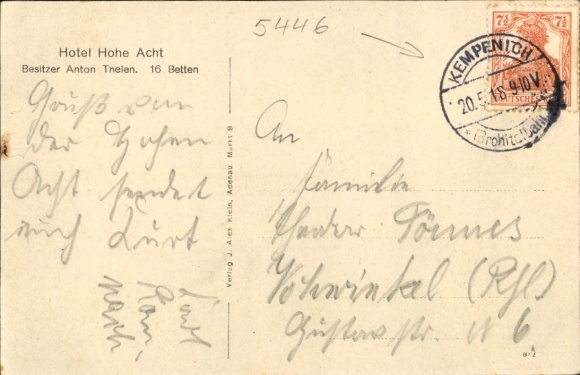 5446
Hotel Hohe Acht
Besitzer Anton Thelen. 16 Betten
Gruß von
der Hohen
Acht sendet
euch Kurt
Verlag J. Alex Klein, Adenau Markt 9
7½ 7½
KEMPENICH
20.5.18. 9-10 V.
* (Brohltalbahn)
An
Familie
Theodor Tönnes
Vohwinkel (Rhl)
Gustavstr. N 6